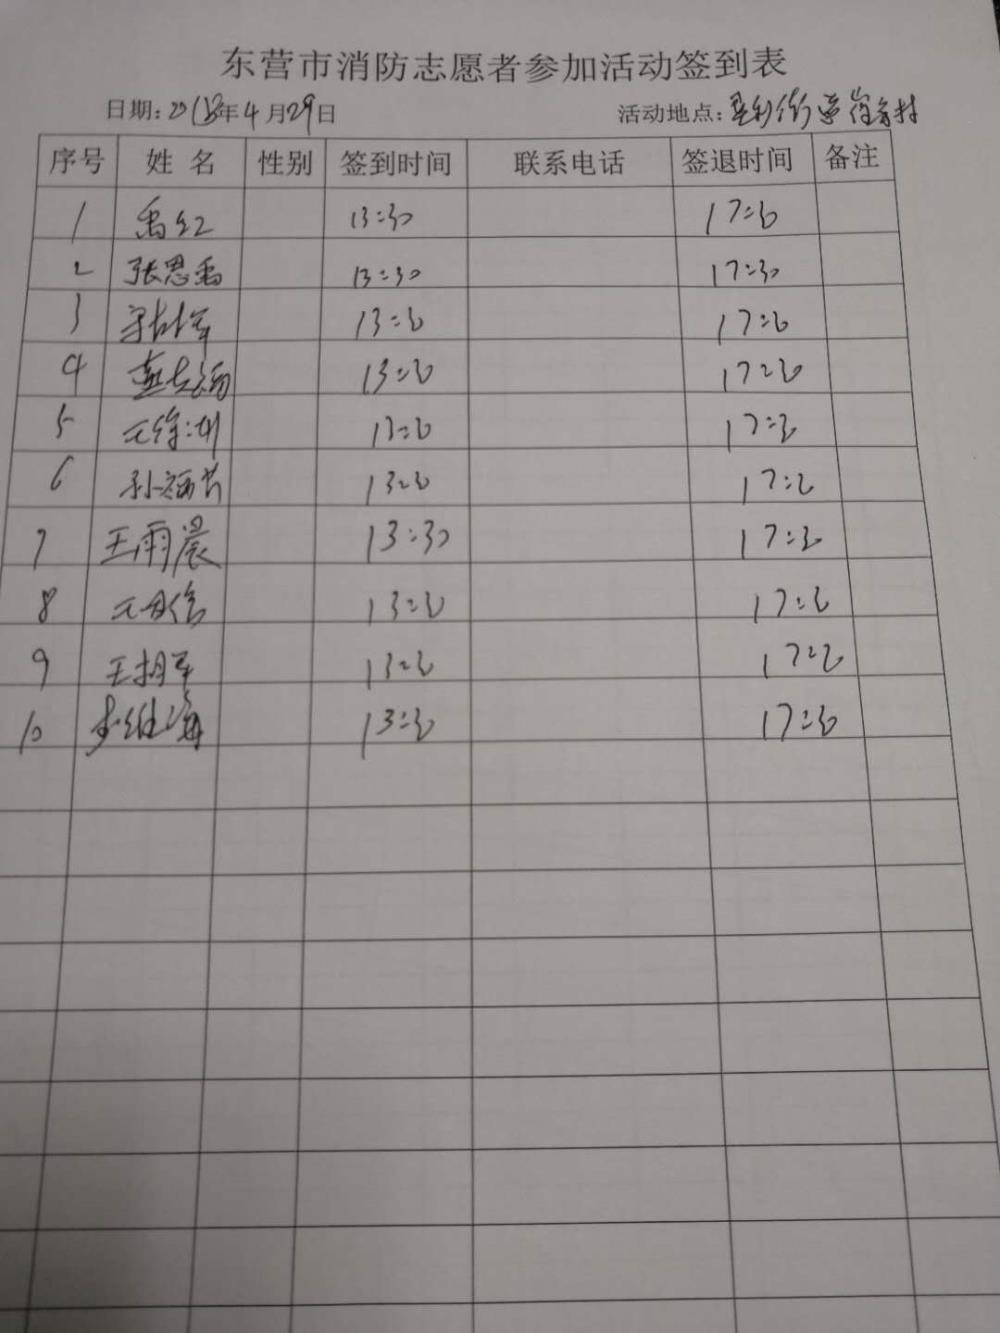 东营市消防志愿者参加活动签到表
日期:2018年4月29日 活动地点:垦利街道 村
序号 姓名 性别 签到时间 联系电话 签退时间 备注
1 禹红 13:30 17:30
2 张思禹 13:30 17:30
3 13:30 17:30
4 13:30 17:30
5 13:30 17:30
6 13:30 17:30
7 王雨晨 13:30 17:30
8 13:30 17:30
9 13:30 17:30
10 李维海 13:30 17:30